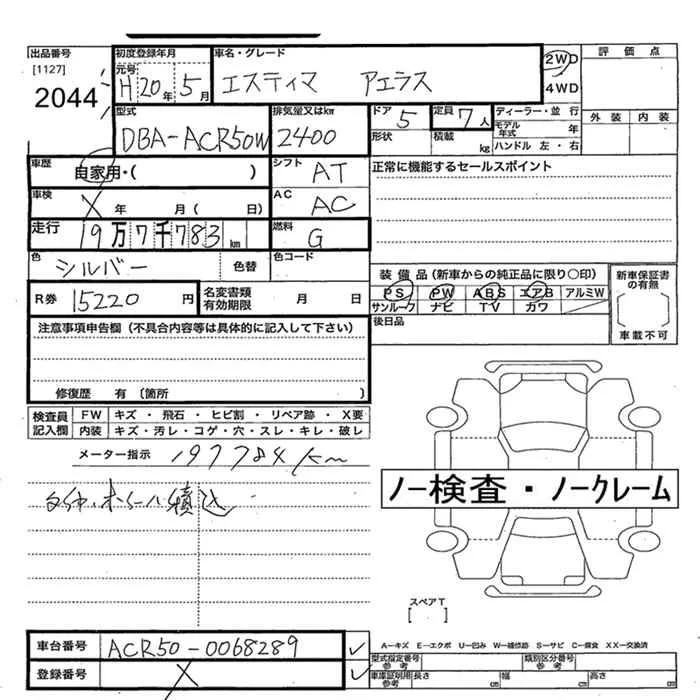 出品番号 初度登録年月 車名・グレード 2WD 評価点
[1127] 元号 H20年5月 エスティマ アエラス 4WD
2044
型式 排気量又はkw ドア 5 定員 7人 ディーラー・並行 外装 内装
DBA-ACR50W 2400 形状 積載 kg モデル年式 年
ハンドル 左・右
車歴 自家用・( ) シフト AT 正常に機能するセールスポイント
車検 X 年 月( 日) AC AC
走行 19万7千783km 燃料 G
色 シルバー 色替 色コード
装備品(新車からの純正品に限り○印) 新車保証書の有無
R券 15220円 名変書類有効期限 月 日 PS PW ABS エアB アルミW
サンルーフ ナビ TV カワ
注意事項申告欄(不具合内容等は具体的に記入して下さい) 後日品 車載不可
修復歴 有〔箇所 〕
検査員記入欄 FW キズ・飛石・ヒビ割・リペア跡・X要
内装 キズ・汚レ・コゲ・穴・スレ・キレ・破レ
メーター指示 197784km
ノー検査・ノークレーム
タイヤ・ホイール積込
スペアT
[ ]
車台番号 ACR50-0068289 ✓ A−キズ E−エクボ U−凹み W−補修跡 S−サビ C−腐食 XX−交換済
型式指定番号参考 類別区分番号参考
登録番号 X ✓ 車庫証明用参考 長さ cm 幅 cm 高さ cm